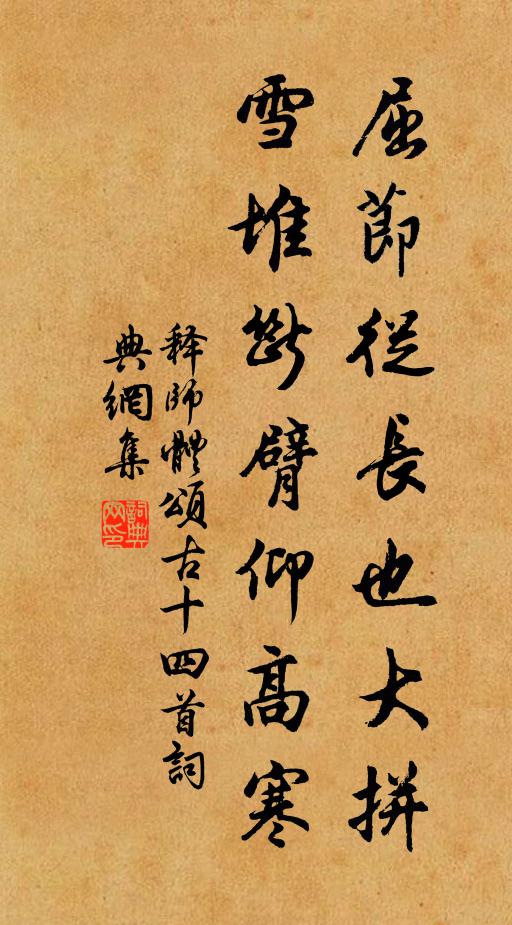 屈節從長也大拼
雪堆斷臂仰高寒
释師體頌古十四首詞
典網集
詞典網印